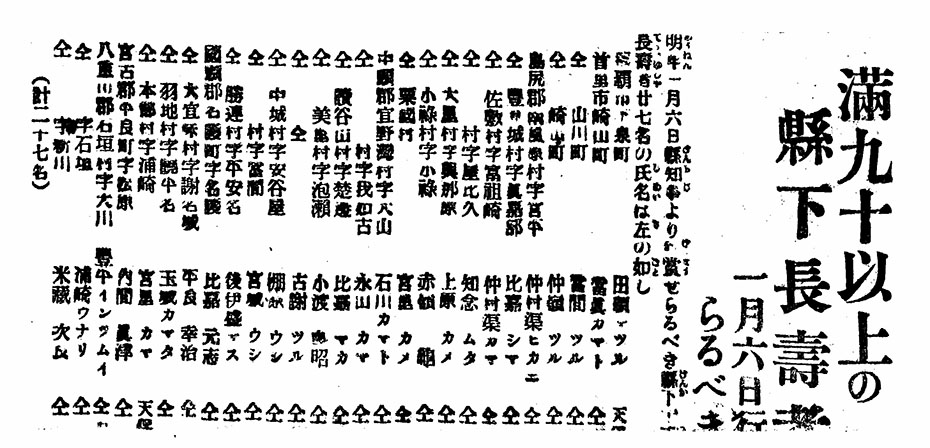 滿九十以上の
縣下長壽者
一月六日行
らるべき
明年一月六日縣知事より賞せらるべき縣下
長壽者廿七名の氏名は左の如し
那覇市下泉町 田頭マツル 天
首里市崎山町 當眞カマト 仝
仝 山川町 當間 ツル 仝
仝 崎山町 仲嶺 ツル 仝
島尻郡南風原村字宮平 仲村渠ヒカエ 仝
仝 豐見城村字眞嘉部 比嘉 シマ 仝
仝 佐敷村字富祖崎 仲村渠カマ 仝
仝 村字屋比久 知念 ムタ 仝
仝 大里村字與那原 上原 カメ 仝
仝 小祿村字小祿 赤嶺 仝
仝 粟國村 宮里 カメ 仝
中頭郡宜野灣村字大山 石川カマト 仝
仝 村字我如古 永山 カマ 仝
仝 讀谷山村字楚邊 比嘉 マカ 仝
仝 美里村字泡瀬 小渡 昭 仝
仝 仝 古謝 ツル 仝
仝 中城村字安谷屋 棚原 ウシ 仝
仝 村字當間 宮城 ウシ 仝
仝 勝連村字平安名 後伊盛マス 仝
國頭郡名護町字名護 比嘉 元志 仝
仝 大宜味村字謝名城 平良 幸治 仝
仝 羽地村字饒平名 玉城カマタ 仝
仝 本部村字浦崎 宮里 カマ 天保
宮古郡平良町字松原 內間 眞津 仝
八重山郡石垣村字大川 豐平インツムイ 仝
仝 字石垣 浦崎ウナリ 仝
仝 字新川 米藏 次良 仝
(計二十七名)